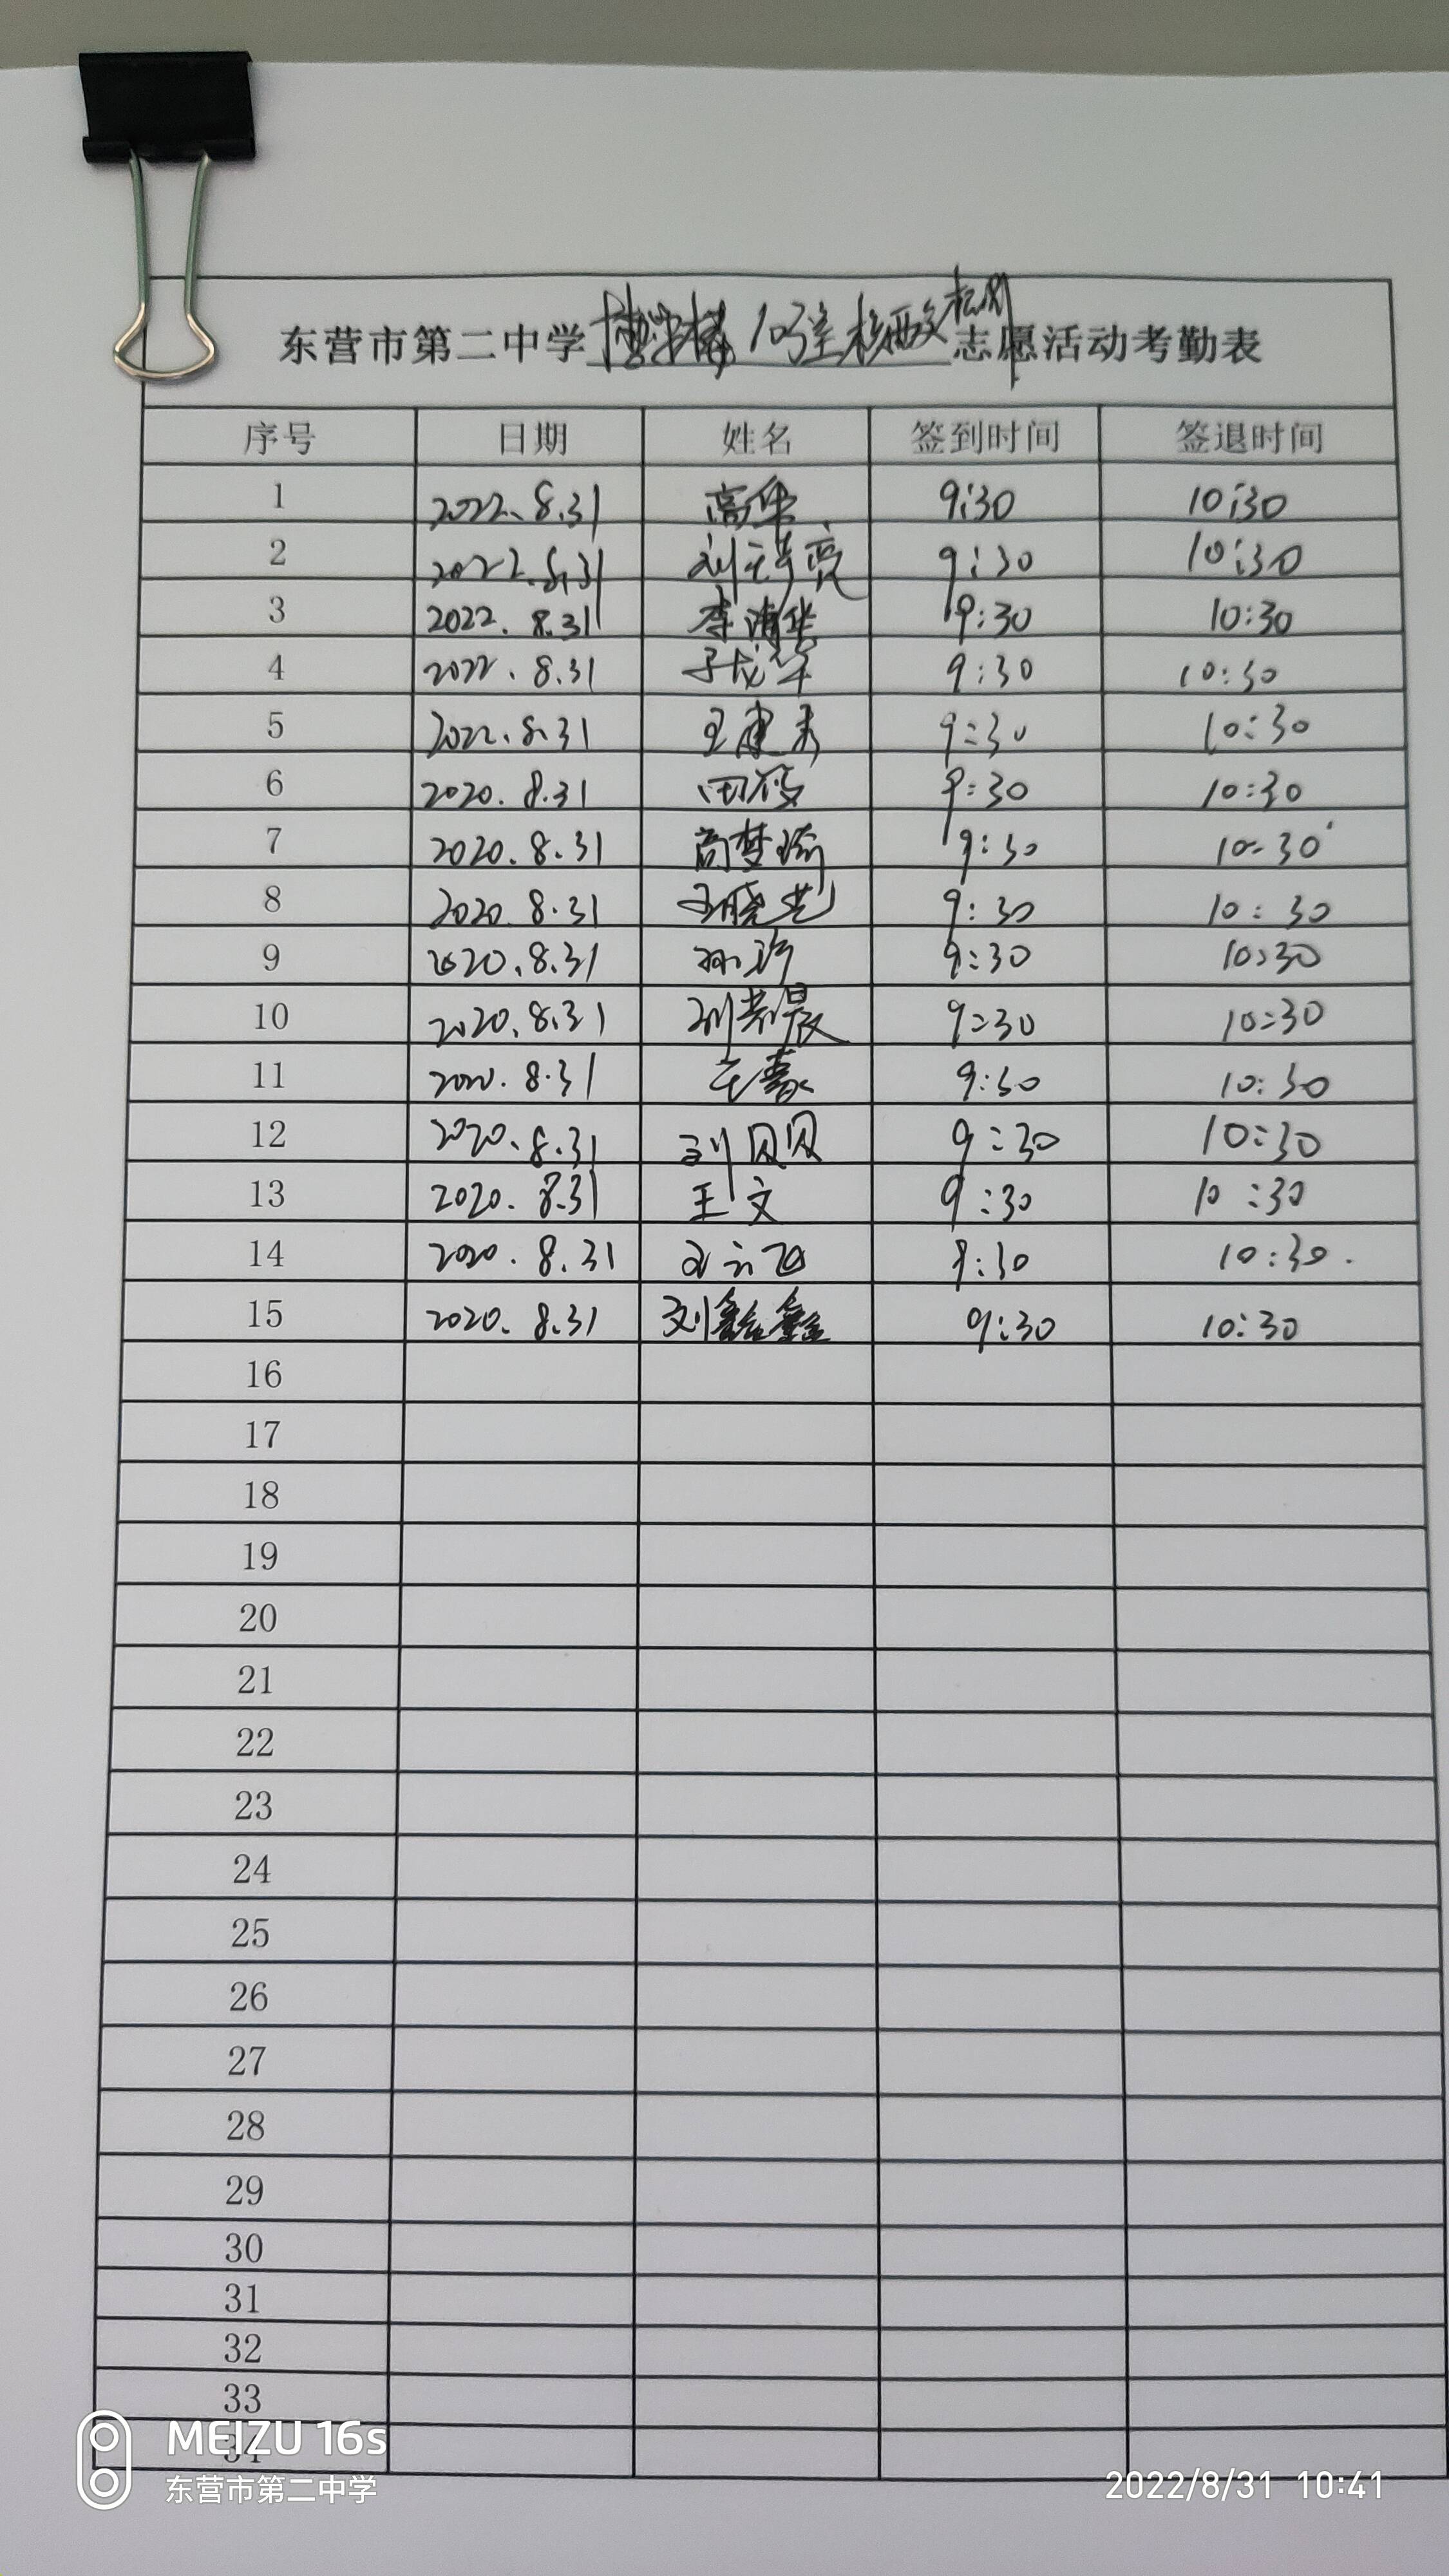 东营市第二中学博学楼10号室核酸检测志愿活动考勤表
序号 日期 姓名 签到时间 签退时间
1 2022.8.31 高华 9:30 10:30
2 2022.8.31 9:30 10:30
3 2022.8.31 李清华 9:30 10:30
4 2022.8.31 9:30 10:30
5 2022.8.31 王建秀 9:30 10:30
6 2020.8.31 9:30 10:30
7 2020.8.31 商梦瑜 9:30 10:30
8 2020.8.31 王晓艺 9:30 10:30
9 2020.8.31 9:30 10:30
10 2020.8.31 9:30 10:30
11 2020.8.31 9:30 10:30
12 2020.8.31 刘贝贝 9:30 10:30
13 2020.8.31 王文 9:30 10:30
14 2020.8.31 9:30 10:30.
15 2020.8.31 刘鑫鑫 9:30 10:30
16
17
18
19
20
21
22
23
24
25
26
27
28
29
30
31
32
33
34
MEIZU 16s
东营市第二中学
2022/8/31 10:41